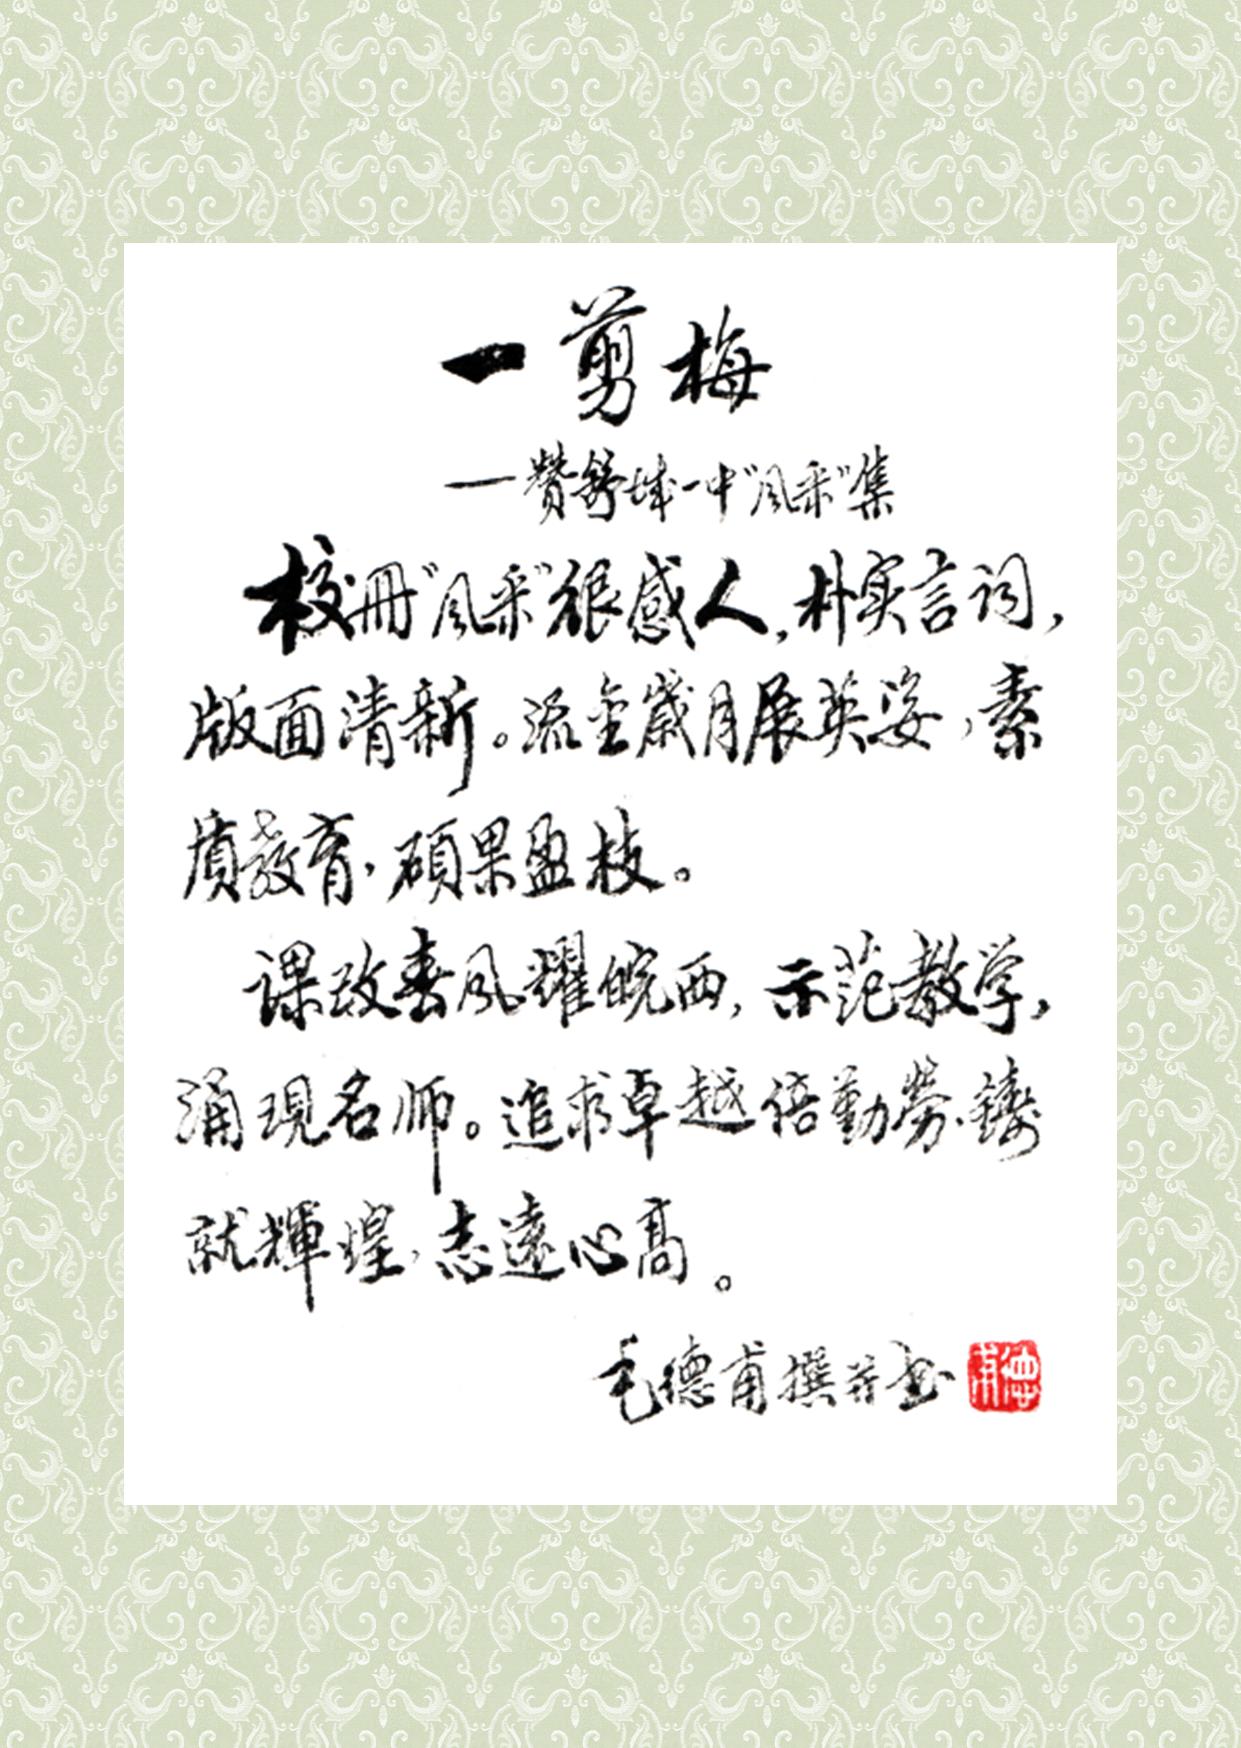 一剪梅
—赞舒城一中“风采”集
校冊“风采”很感人，朴实言词，
版面清新。流金歲月展英姿，素
质教育，碩果盈枝。
课改春风耀皖西，示范教学，
涌現名师。追求卓越倍勤劳，鑄
就輝煌，志遠心高。
毛德甫撰并书
德甫